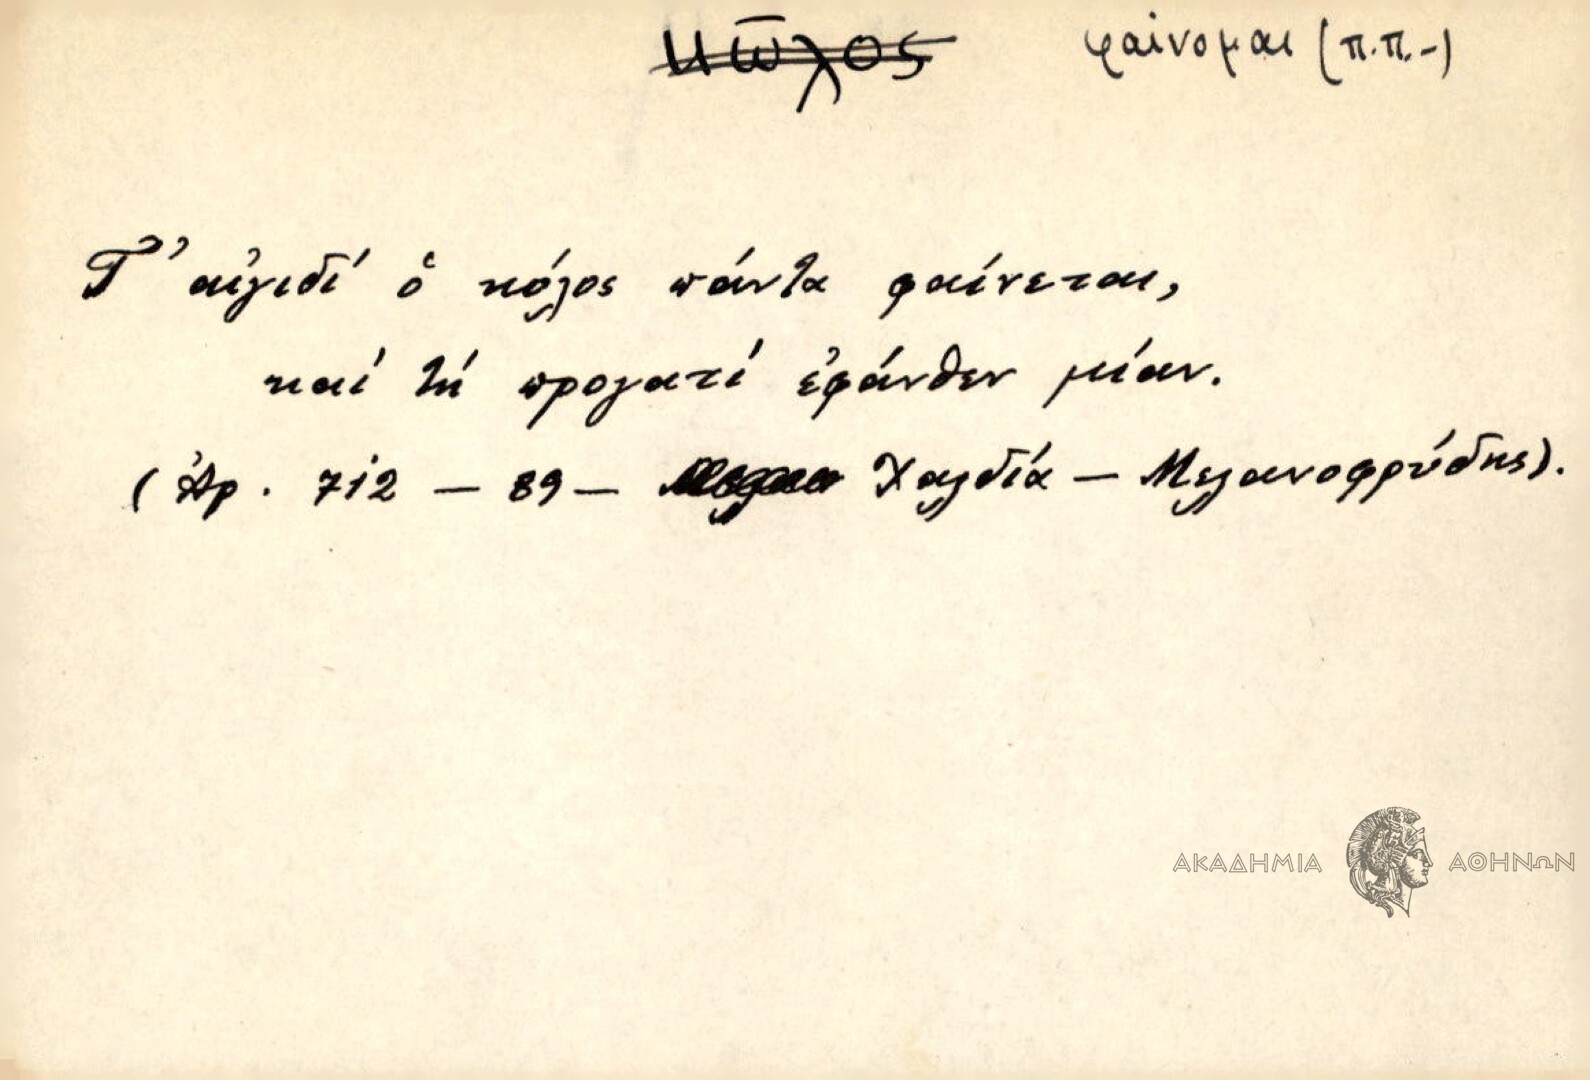 κῶλος φαίνομαι (π.π.-)
Τ' αἰγιδί ὁ κόλος πάντα φαίνεται,
καί τή προγατί ἐφάνθεν μίαν.
(Ἀρ. 712 - 89 - Χαλδία - Μελανοφρύδης).
ΑΚΑΔΗΜΙΑ ΑΘΗΝΩΝ